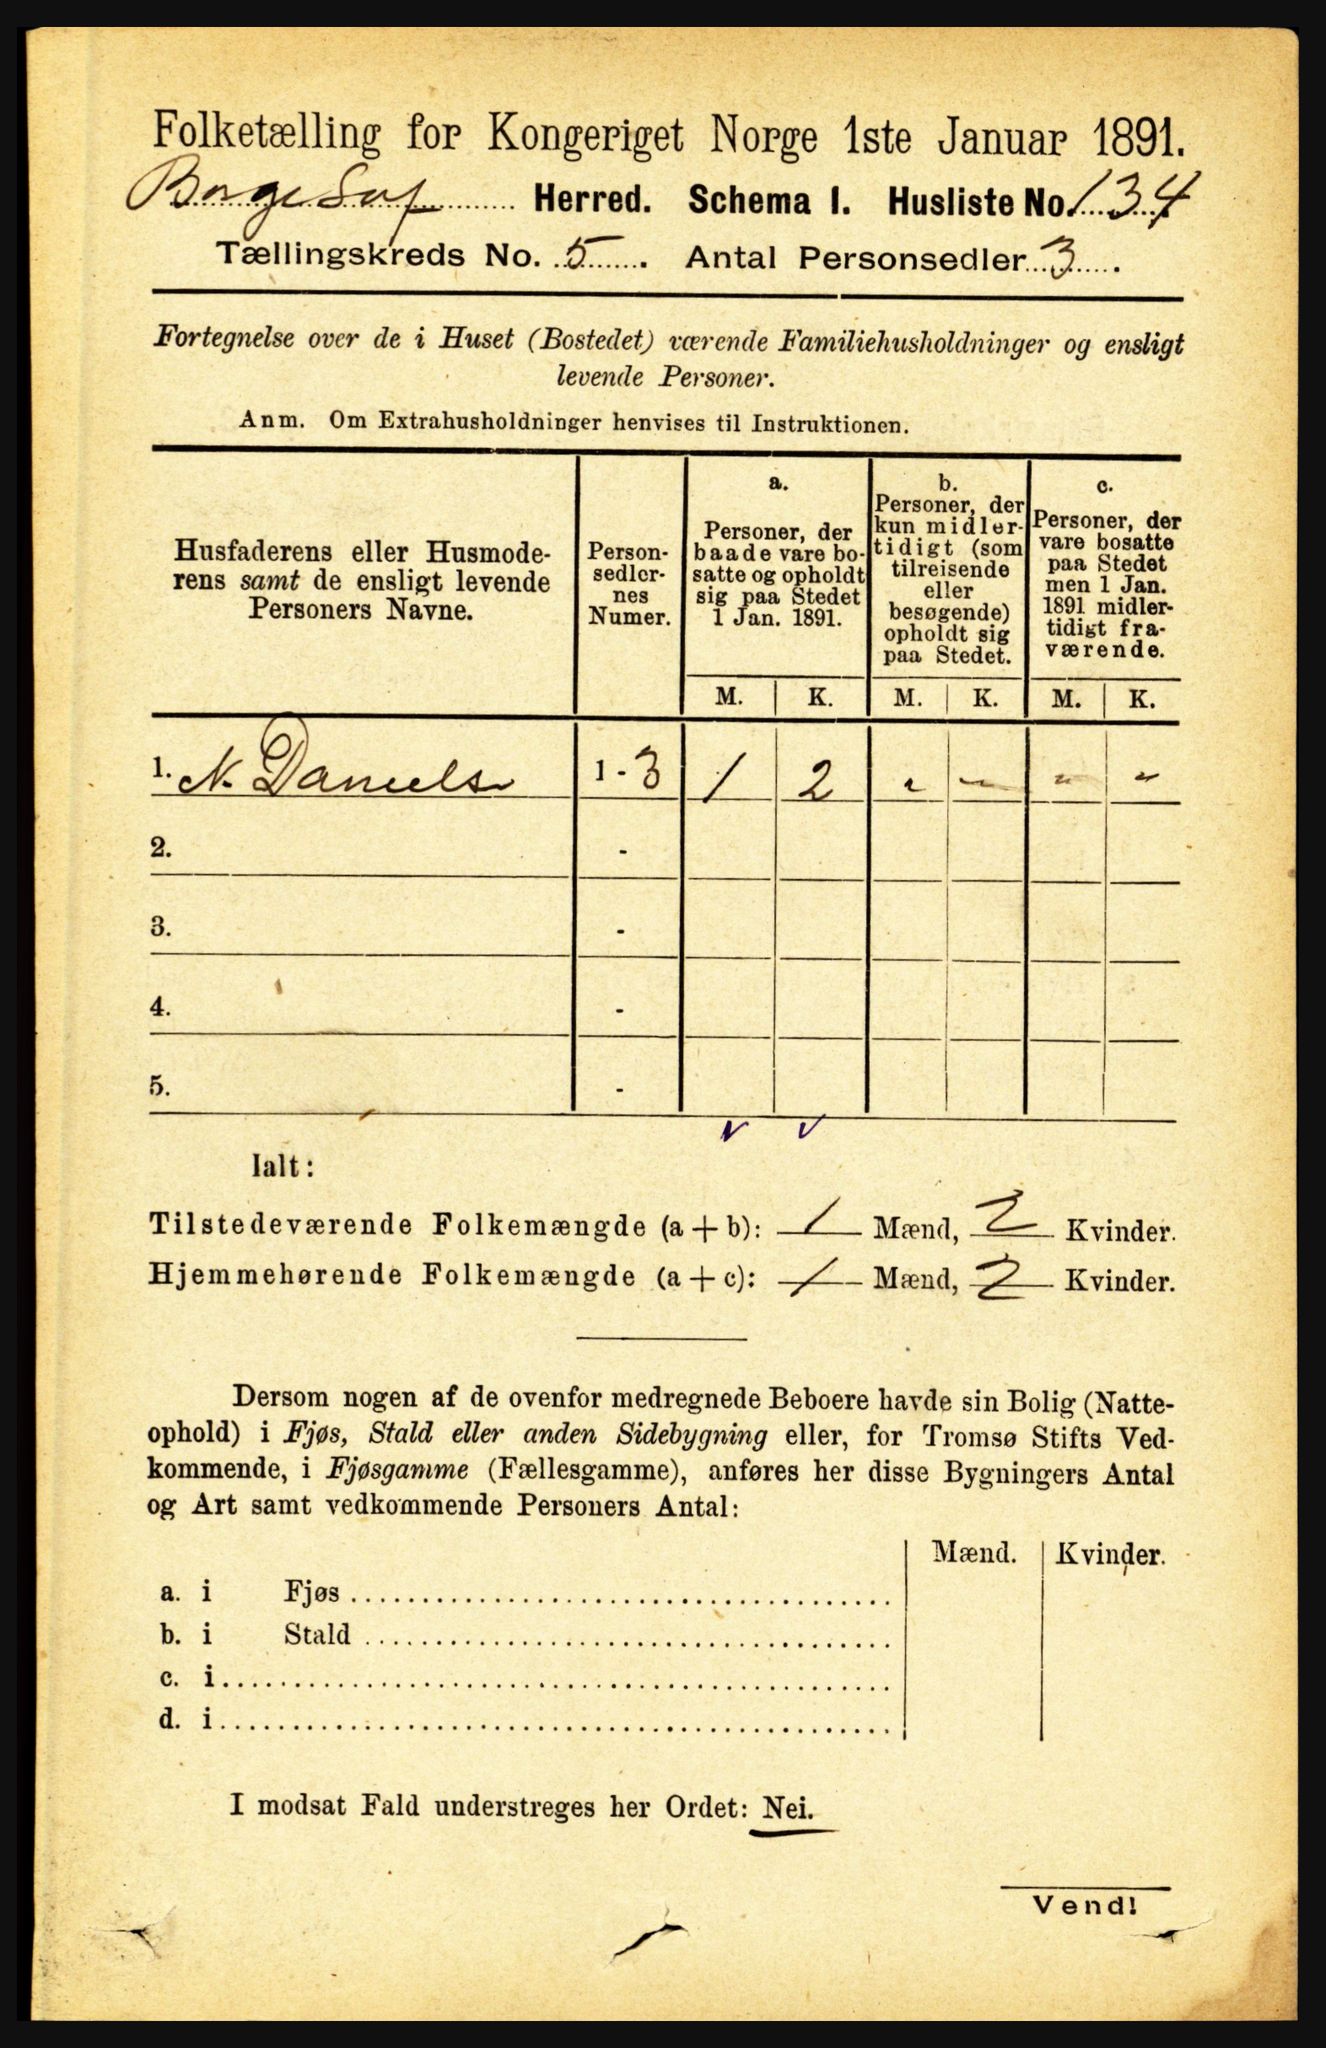 Folketælling for Kongeriget Norge 1ste Januar 1891.
Borge Herred. Schema I. Husliste No. 134
Tællingskreds No. 5. Antal Personsedler 3.
Fortegnelse over de i Huset (Bostedet) værende Familiehusholdninger og ensligt
levende Personer.
Anm. Om Extrahusholdninger henvises til Instruktionen.
Husfaderens eller Husmode-
rens samt de ensligt levende
Personers Navne.
Person-
sedler-
nes
Numer.
a.
Personer, der
baade vare bo-
satte og opholdt
sig paa Stedet
1 Jan. 1891.
b.
Personer, der
kun midler-
tidigt (som
tilreisende
eller
besøgende)
opholdt sig
paa Stedet.
c.
Personer, der
vare bosatte
paa Stedet
men 1 Jan.
1891 midler-
tidigt fra-
værende.
M. K. M. K. M. K.
1. N. Daniels 1 - 3 1 2 " " " "
2. -
3. -
4. -
5. -
Ialt:
Tilstedeværende Folkemængde (a + b): 1 Mænd, 2 Kvinder.
Hjemmehørende Folkemængde (a + c): 1 Mænd, 2 Kvinder.
Dersom nogen af de ovenfor medregnede Beboere havde sin Bolig (Natte-
ophold) i Fjøs, Stald eller anden Sidebygning eller, for Tromsø Stifts Ved-
kommende, i Fjøsgamme (Fællesgamme), anføres her disse Bygningers Antal
og Art samt vedkommende Personers Antal:
Mænd. Kvinder.
a. i Fjøs
b. i Stald
c. i
d. i
I modsat Fald understreges her Ordet: Nei.
Vend!